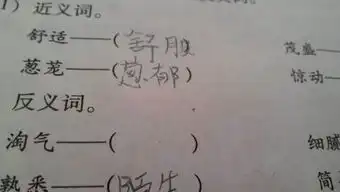 1) 近义词。
舒适——(舒服) 茂盛—
葱茏——(葱郁) 惊动—
反义词。
淘气——( ) 细腻
熟悉——(陌生 简